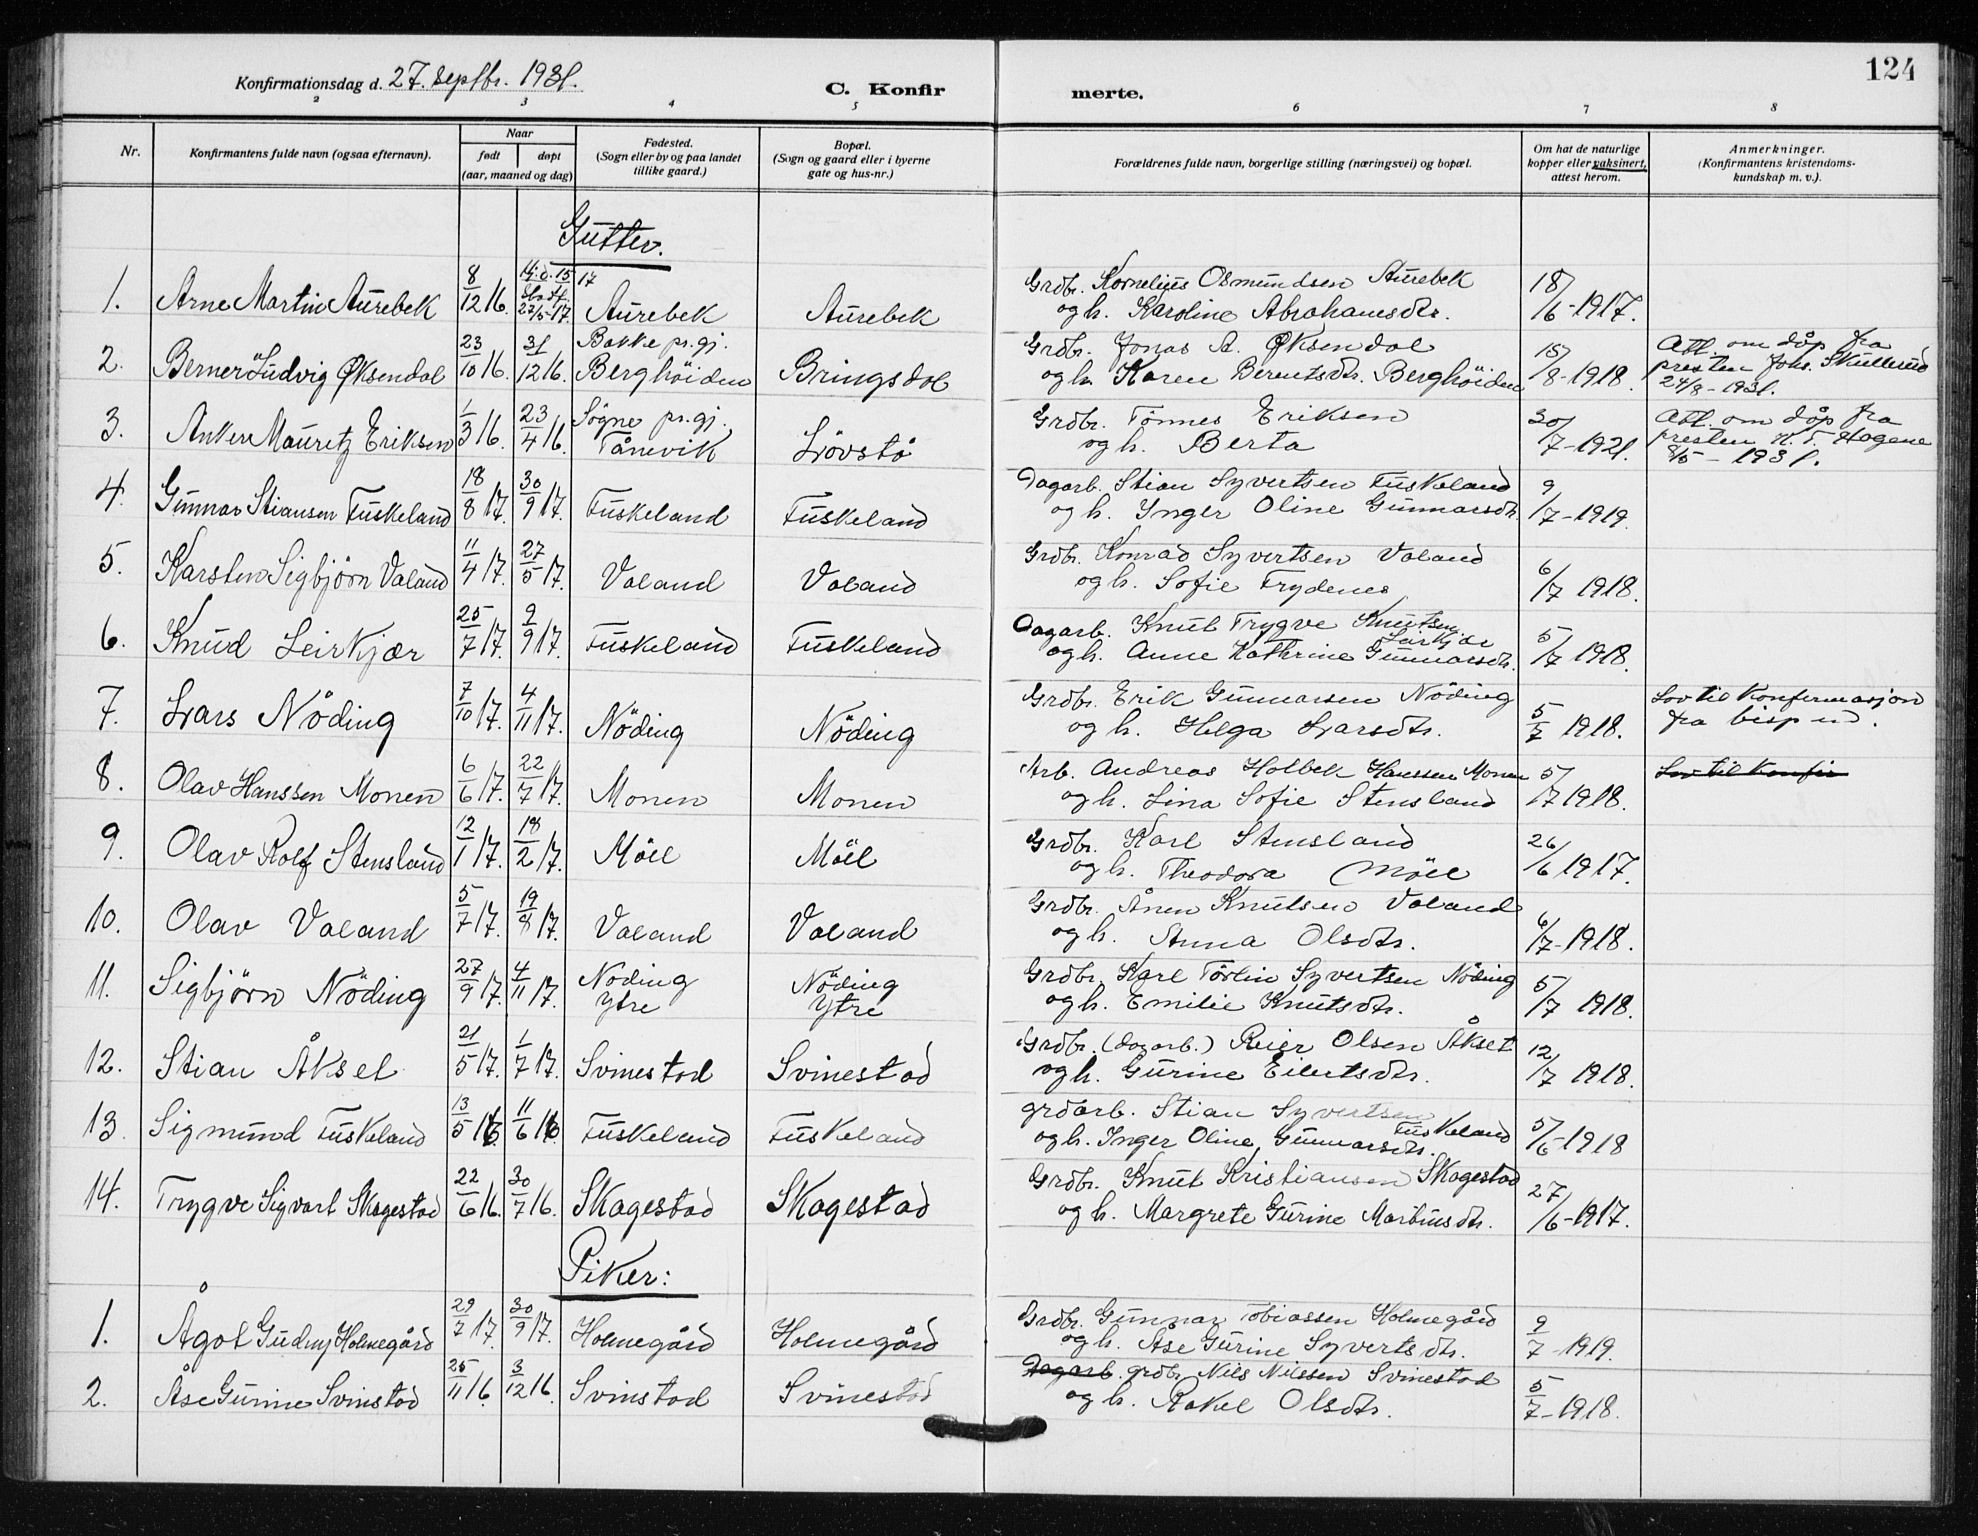 124
Konfirmationsdag d. 27. septbr. 1931.
C. Konfirmerte.
2 3 4 5 6 7 8
Nr.
Konfirmantens fulde navn (ogsaa efternavn).
Naar
født døpt
(aar, maaned og dag)
Fødested.
(Sogn eller by og paa landet
tillike gaard.)
Bopæl.
(Sogn og gaard eller i byerne
gate og hus-nr.)
Forældrenes fulde navn, borgerlige stilling (næringsvei) og bopæl.
Om hat de naturlige
kopper eller vaksinert,
attest herom.
Anmerkninger.
(Konfirmantens kristendoms-
kundskap m. v.).
Gutter.
1. Arne Martin Aurebek 8/12 16. 15/4 17 stadf. 27/5-17. Aurebek Aurebek
Grdbr. Kornelius Osmundsen Aurebek
og h. Karoline Abrahamsdtr. 18/6-1917.
2. Berner Ludvig Øksendal 23/10 16. 31/12 16. Bakke pr.gj. Berghöiden Bringsdal
Grdbr. Jonas A. Øksendal
og h. Karen Berentsdtr. Berghöiden 15/8-1918.
Att. om dåp fra
presten Johs. Skullerud
24/8-1931.
3. Anker Mauretz Eriksen 1/3 16. 23/4 16. Søgne pr.gj. Tånevik Lövstö
Grdbr. Tönnes Eriksen
og h. Berta 30/7-1921.
Att. om dåp fra
presten H. T. Hagene
8/5-1931.
4. Gunnar Stiansen Tuskeland 18/8 17. 30/9 17. Tuskeland Tuskeland
Dagarb. Stian Syvertsen Tuskeland
og h. Inger Oline Gunnarsdtr. 9/7-1919.
5. Karsten Sigbjørn Valand 11/4 17. 27/5 17. Valand Valand
Grdbr. Konrad Syvertsen Valand
og h. Sofie Frydenes 6/7 1918.
6. Knud Leirkjær 25/7 17. 9/9 17. Tuskeland Tuskeland
Dagarb. Knut Trygve Knutsen Leirkjær
og h. Anne Kathrine Gunnarsdtr. 5/7 1918.
7. Lars Nöding 7/10 17. 4/11 17. Nöding Nöding
Grdbr. Erik Gunnarsen Nöding
og h. Helga Larsdtr. 5/7 1918.
Lov til konfirmasjon
fra bispen.
8. Olav Hanssen Monen 6/6 17. 22/7 17. Monen Monen
Arb. Andreas Holbek Hanssen Monen
og h. Lina Sofie Stensland 5/7 1918.
Lov til konfir
9. Olav Rolf Stensland 12/1 17. 18/2 17. Möll Möll
Grdbr. Karl Stensland
og h. Theodora Möll 26/6 1917.
10. Olav Valand 5/7 17. 19/8 17. Valand Valand
Grdbr. Ånen Knutsen Valand
og h. Anna Olsdtr. 6/7-1918.
11. Sigbjørn Nöding 27/9 17. 4/11 17. Nöding Ytre Nöding Ytre
Grdbr. Karl Torlin Syvertsen Nöding
og h. Emilie Knutsdtr. 5/7 1918.
12. Stian Åksel 21/5 17. 1/7 17. Svinestad Svinestad
Grdbr. (dagarb.) Reier Olsen Åkset
og h. Gurine Eilertsdtr. 12/7 1918.
13. Sigmund Tuskeland 13/5 16. 11/6 16. Tuskeland Tuskeland
grdarb. Stian Syvertsen Tuskeland
og h. Inger Oline Gunnarsdtr. 5/6-1918
14. Trygve Sigvart Skagestad 22/6 16. 30/7 16. Skagestad Skagestad
Grdbr. Knut Kristiansen Skagestad
og h. Margrete Gurine Martinusdtr. 27/6-1917.
Piker:
1. Ågot Gudny Holmegård 29/7 17. 30/9 17. Holmegård Holmegård
Grdbr. Gunnar Tobiassen Holmegård
og h. Åse Gurine Syvertsdtr. 9/7-1919.
2. Åse Gurine Svinstad 25/11 16. 3/12 16. Svinstad Svinestad
Dagarb. grdbr. Nils Nilssen Svinestad
og h. Rakel Olsdtr. 5/7-1918.